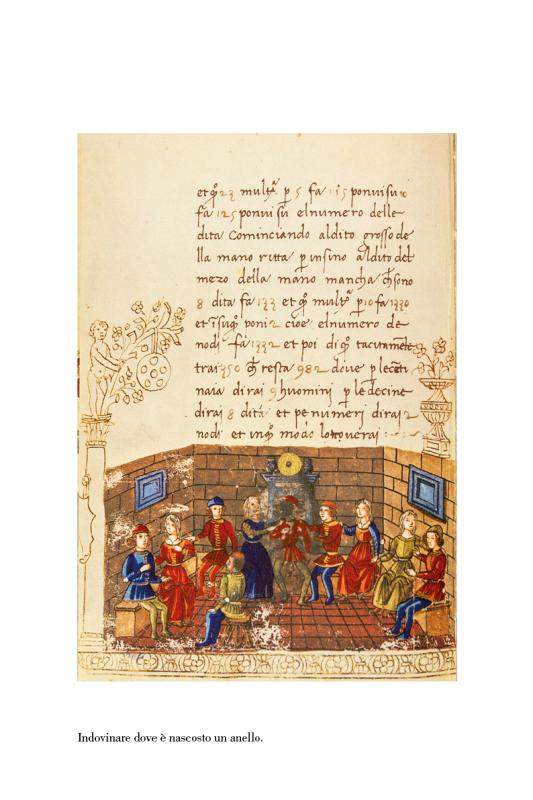 et q̃o 23 multa p̱ 5 fa 115 ponvisu 10
fa 125 ponvi su el numero delle
dita Cominciando aldito grosso de
lla mano ritta p̱ insino aldito del
mezo della mano mancha cħ sono
8 dita fa 133 et q̃o multa p̱ 10 fa 1330
et ĩ suq̃o poni 2 cioe elnumero de
nodi fa 1332 et poi di q̃o tacitamẽte
trai 350 cħ resta 982 dove p̱ le cẽti
naia dirai 9 huomini p̱ le decine
dirai 8 dita et pe numeri dirai 2
nodi et in q̃o modo lo troverai
Indovinare dove è nascosto un anello.